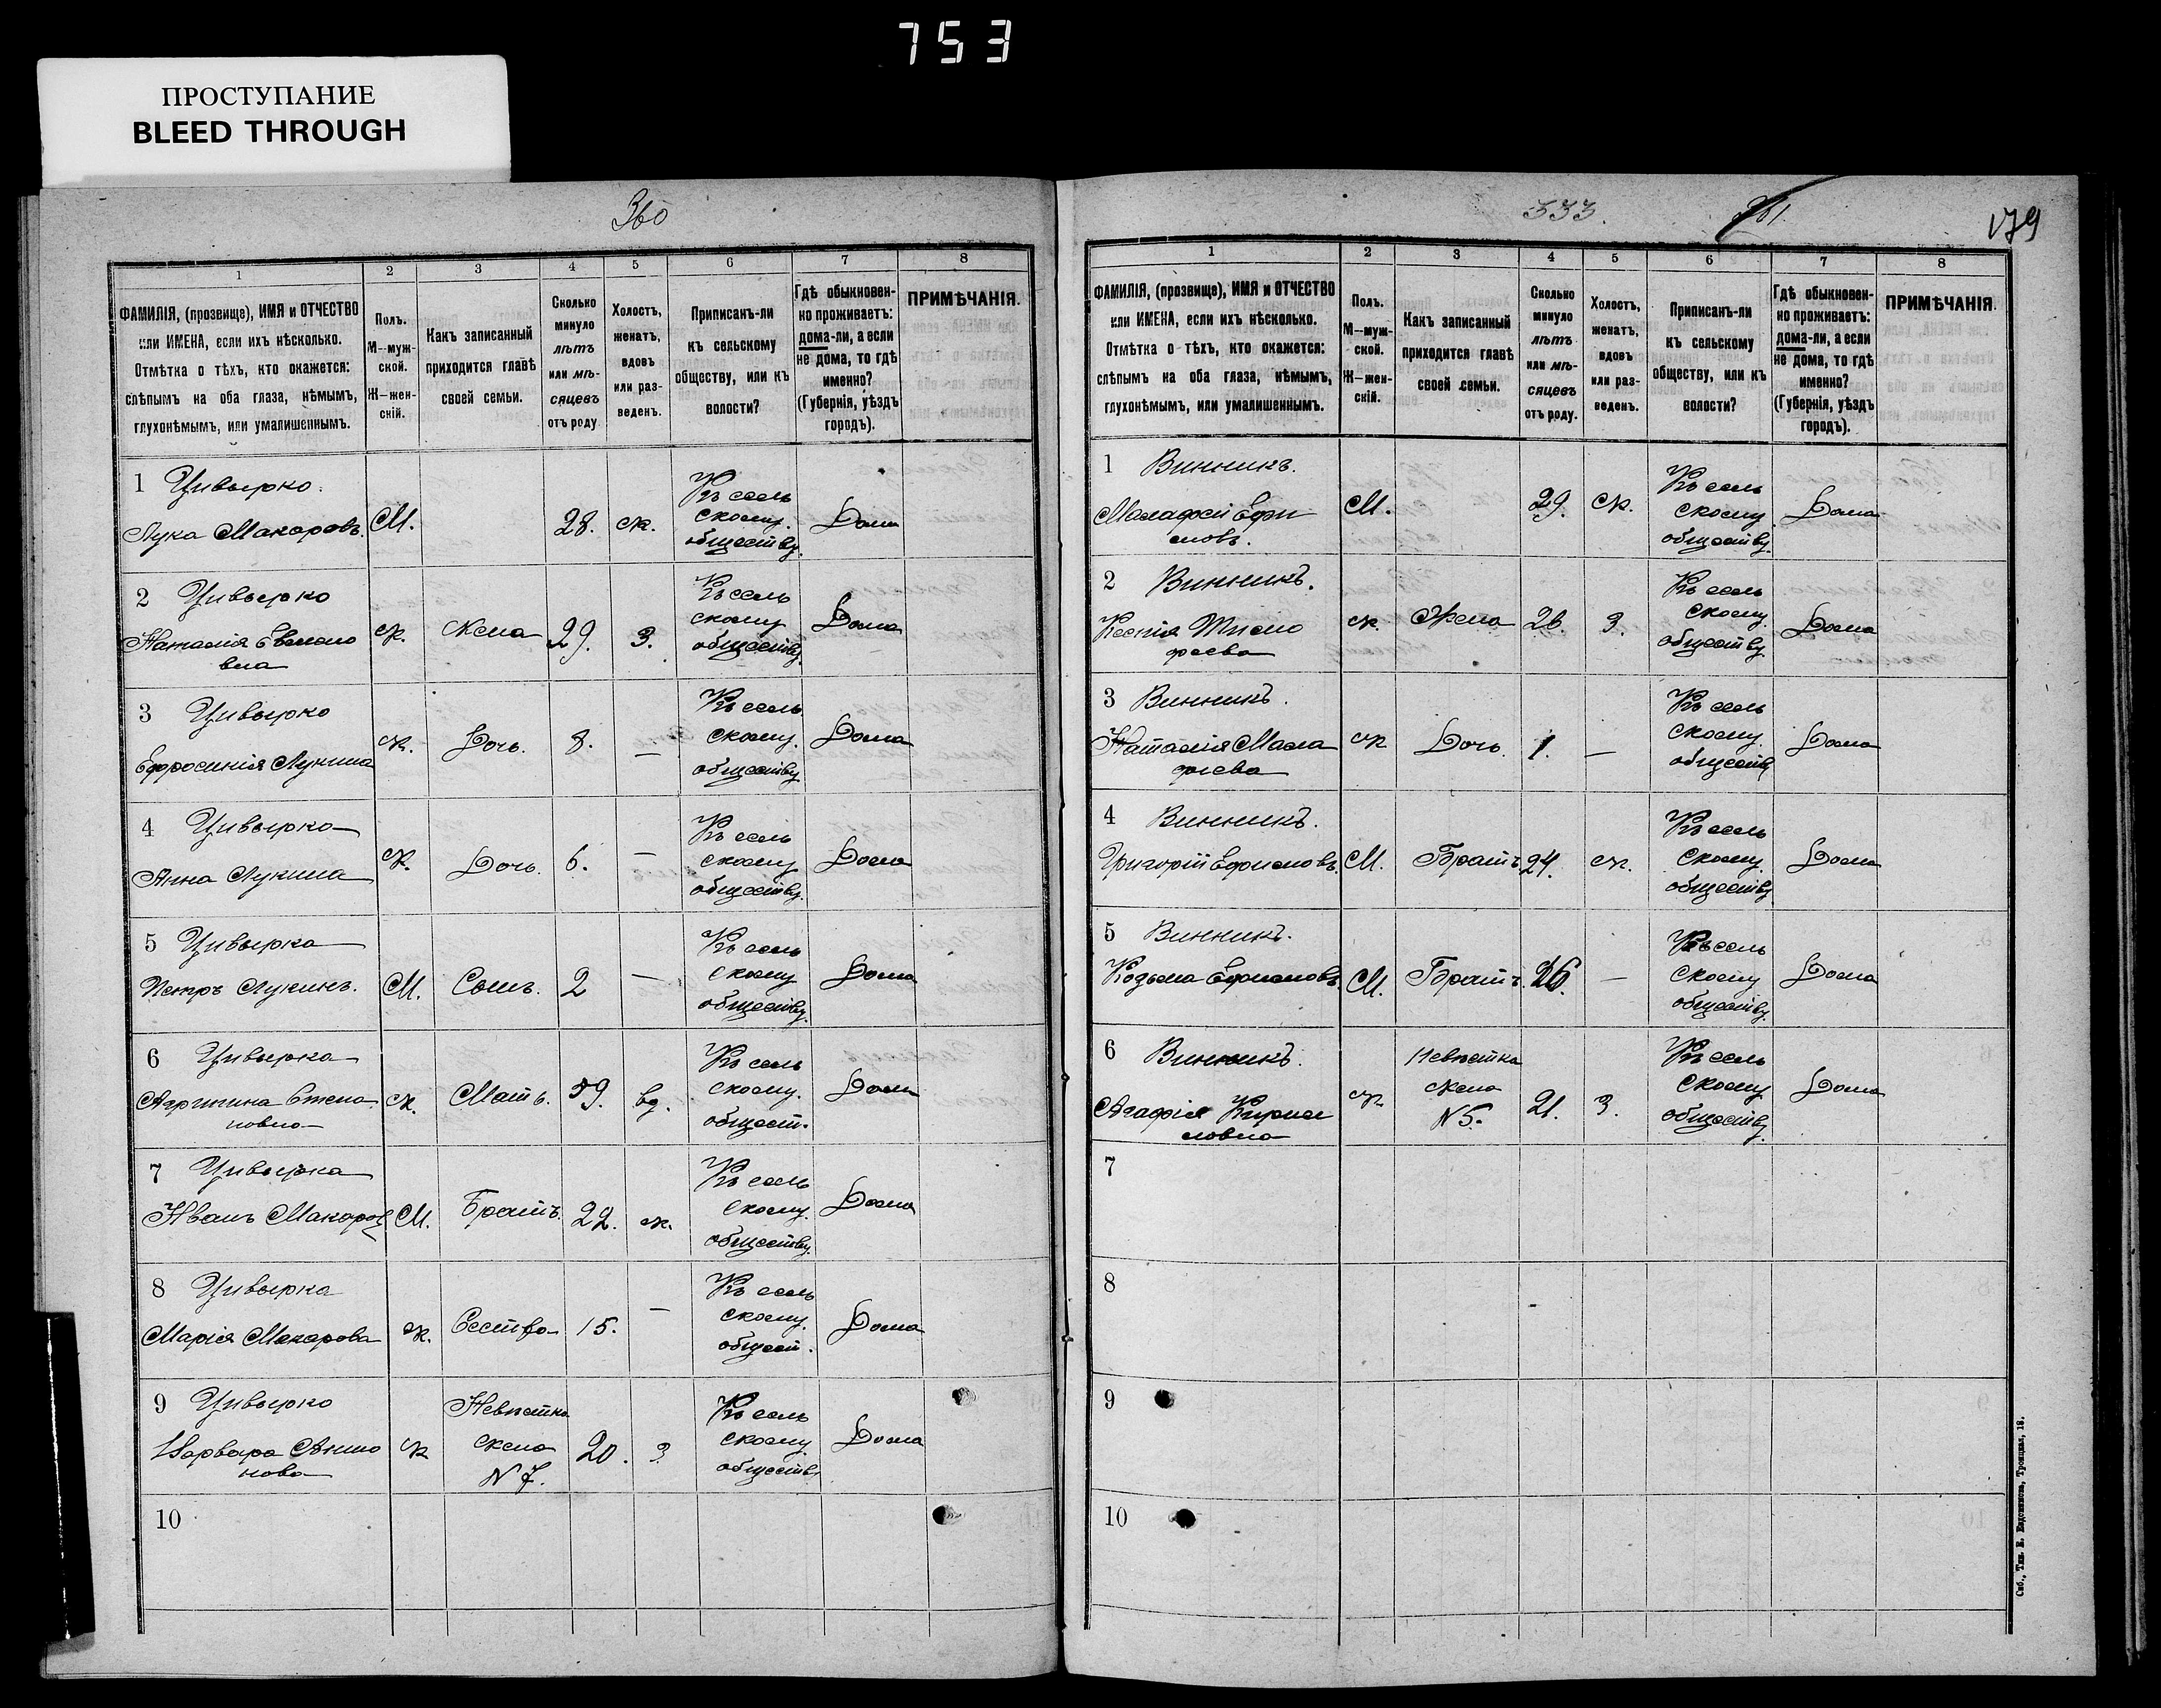 753
ПРОСТУПАНИЕ
BLEED THROUGH
360
1 2 3 4 5 6 7 8
ФАМИЛІЯ, (прозвище), ИМЯ и ОТЧЕСТВО
или ИМЕНА, если ихъ нѣсколько.
Отмѣтка о тѣхъ, кто окажется:
слѣпымъ на оба глаза, нѣмымъ,
глухонѣмымъ, или умалишеннымъ.
Полъ.
М—муж-
ской.
Ж—жен-
скій.
Какъ записанный
приходится главѣ
своей семьи.
Сколько
минуло
лѣтъ
или мѣ-
сяцевъ
отъ роду.
Холостъ,
женатъ,
вдовъ
или раз-
веденъ.
Приписанъ-ли
къ сельскому
обществу, или къ
волости?
Гдѣ обыкновен-
но проживаетъ:
дома-ли, а если
не дома, то гдѣ
именно?
(Губернія, уѣздъ
городъ).
ПРИМѢЧАНІЯ.
1 Цивырко.
Лука Макаровъ. М. 28. ж. Къ сель
скому.
обществу. Дома
2 Цивырко
Наталія
вна ж. жена 29. З. Къ сель
скому
обществу. Дома
3 Цивырко
Ефросинія Лукина ж. Дочь. 8. — Къ сель
скому.
обществу Дома
4 Цивырко
Анна Лукина ж. Дочь. 6. — Къ сель
скому
обществу. Дома
5 Цивырка
Петръ Лукинъ. М. Сынъ. 2 — Къ сель
скому
обществу. Дома
6 Цивырка
Агрипина Степа
новна ж. Мать. 59. вд. Къ сель
скому.
общест. Дома
7 Цивырка
Иванъ Макаров М. Братъ. 22. ж. Къ сель
скому.
обществу. Дома
8 Цивырка
Марія Макарова ж. Сестра 15. — Къ сель
скому.
общест. Дома
9 Цивырко
Варвара
нова ж Невѣстка
жена
N 7. 20. З Къ сель
скому.
обществ. Дома
10
333. 179
1 2 3 4 5 6 7 8
ФАМИЛІЯ, (прозвище), ИМЯ и ОТЧЕСТВО
или ИМЕНА, если ихъ нѣсколько.
Отмѣтка о тѣхъ, кто окажется:
слѣпымъ на оба глаза, нѣмымъ,
глухонѣмымъ, или умалишеннымъ.
Полъ.
М—муж-
ской.
Ж—жен-
скій.
Какъ записанный
приходится главѣ
своей семьи.
Сколько
минуло
лѣтъ
или мѣ-
сяцевъ
отъ роду.
Холостъ,
женатъ,
вдовъ
или раз-
веденъ.
Приписанъ-ли
къ сельскому
обществу, или къ
волости?
Гдѣ обыкновен-
но проживаетъ:
дома-ли, а если
не дома, то гдѣ
именно?
(Губернія, уѣздъ
городъ).
ПРИМѢЧАНІЯ.
1 Винникъ.
Малафей Ефи
мовъ. М. 29. ж. Къ сель
скому
обществу. Дома
2 Винникъ.
Ксенія Тимо
феева ж. Жена 26. З. Къ сель
скому.
обществу. Дома
3 Винникъ.
Наталія Мала
фіева ж Дочь 1. — Къ сель
скому.
обществу Дома
4 Винникъ.
Григорій Ефимовъ. М. Братъ. 24. ж. Къ сель
скому.
обществу Дома
5 Винникъ.
Козьма Ефимовъ. М. Братъ. 26. — Къ сель
скому
обществу. Дома
6 Винникъ.
Агафія Кирил
ловна ж Невѣстка
жена
N 5. 21. З. Къ сель
скому
обществу. Дома
7
8
9
10
Спб., Тип. Е. Евдокимова, Троицкая, 18.